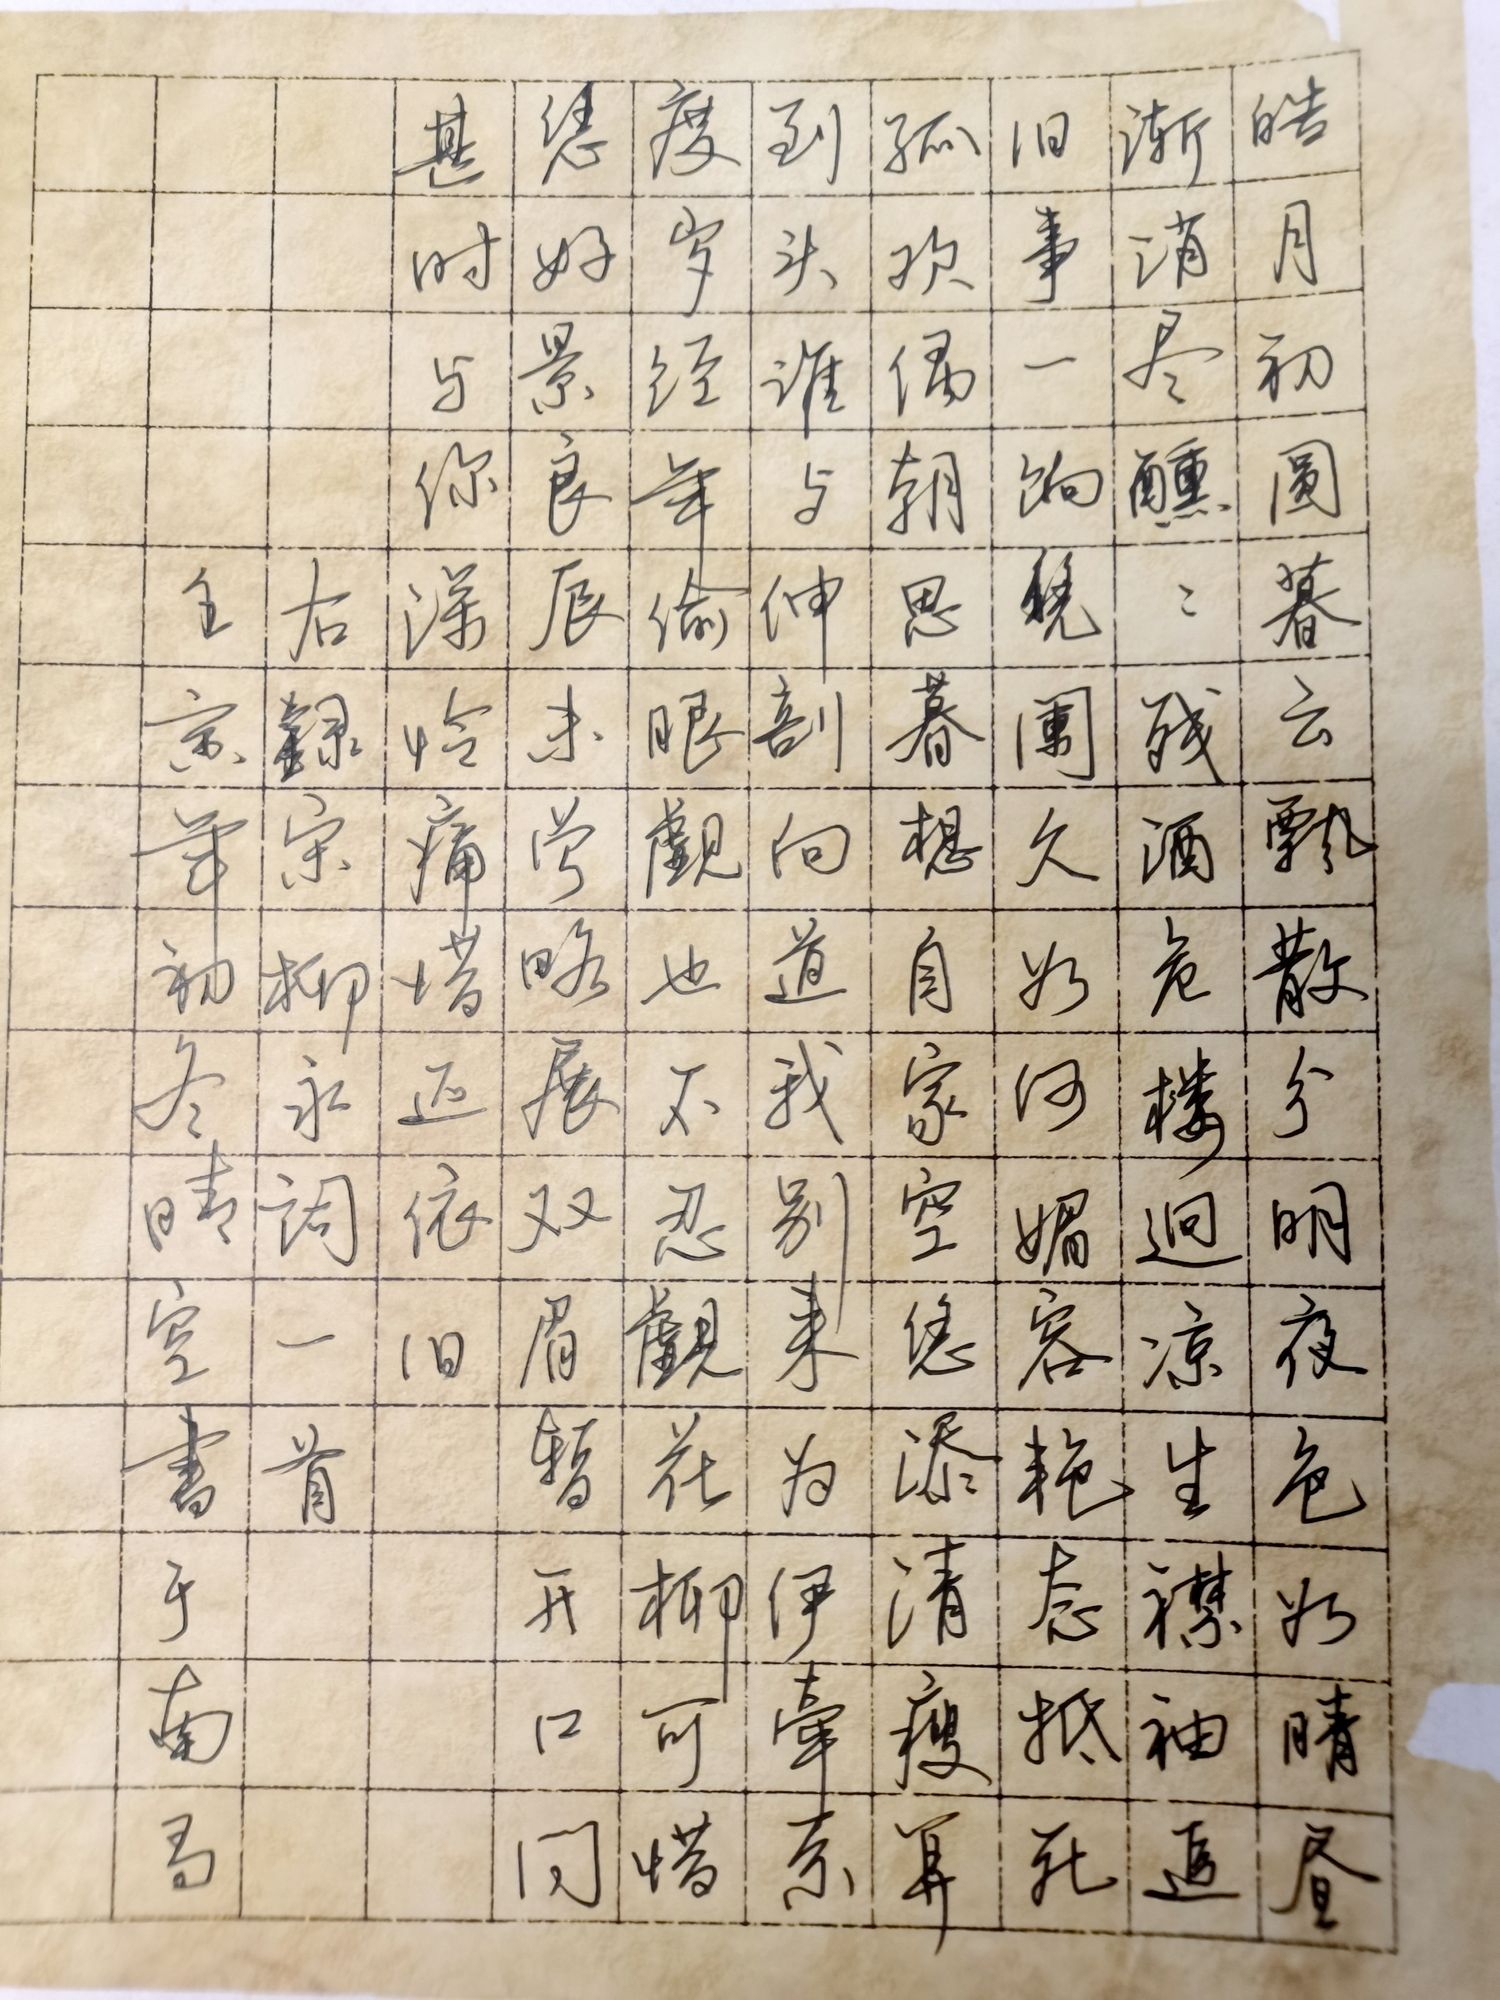 皓月初圆暮云飘散分明夜色如晴昼
渐消尽醺々残酒危楼迥凉生襟袖追
旧事一饷凭阑久如何媚容艳态抵死
孤欢偶朝思暮想自家空恁添清瘦算
到头谁与伸剖向道我别来为伊牵系
度岁经年偷眼覷也不忍覷花柳可惜
恁好景良辰未曾略展双眉暂开口问
甚时与你深怜痛惜还依旧
右録宋柳永词一首
壬寅年初冬晴空書于南